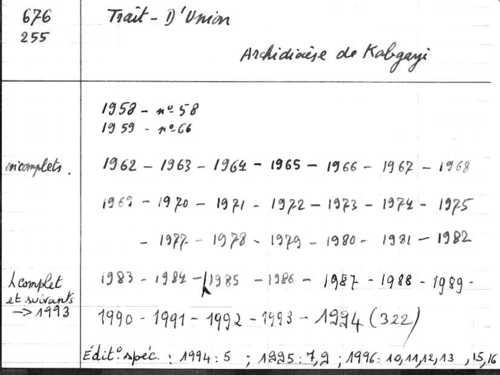 676
255
Trait - D'Union
Archidiocèse de Kabgayi
1958 - nº 58
1959 - nº 66
incomplets. 1962 - 1963 - 1964 - 1965 - 1966 - 1967 - 1968
1969 - 1970 - 1971 - 1972 - 1973 - 1974 - 1975
- 1977 - 1978 - 1979 - 1980 - 1981 - 1982
complet et suivants → 1993
1983 - 1984 - 1985 - 1986 - 1987 - 1988 - 1989 -
1990 - 1991 - 1992 - 1993 - 1994 (322)
Édit° spéc. : 1994 : 5 ; 1995 : 7, 9 ; 1996 : 10, 11, 12, 13 , 15, 16